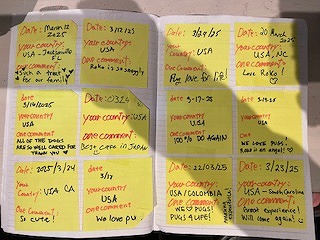 Date: March 12
2025
your country:
USA - Jacksonville
FL
one comment
Such a treat
for our family
Date: 3/12/25
your country:
USA
one comment:
Roko is so snuggly
date
3/14/2025
your country
USA
one comment
ALL OF THE DOGS
ARE SO WELL CARED FOR
THANK YOU
Date: 0324
your country: USA
one comment:
BEST CAFE IN JAPAN
Date: 2025/3/24
your
Country: USA CA
One Comment:
So cute!
date
3/17
your country
USA
one comment
we love pu
Date: 3/29/25
your
Country: USA
One Comment:
Pug love for life!
Date: 20 March
2025
your country:
USA, NC
one comment
Love Roko!
date
9-17-25
your country
USA
one comment
100% DO AGAIN
date
your country
USA
one comment
WE LOVE PUGS!
Date: 22/03/25
your country:
USA/COLOMBIA
one comment:
WE PUGS!
PUGS 4 LIFE!
Date: 3/23/25
your country:
USA - South Carolina
one comment:
Great experience!
Will come again!